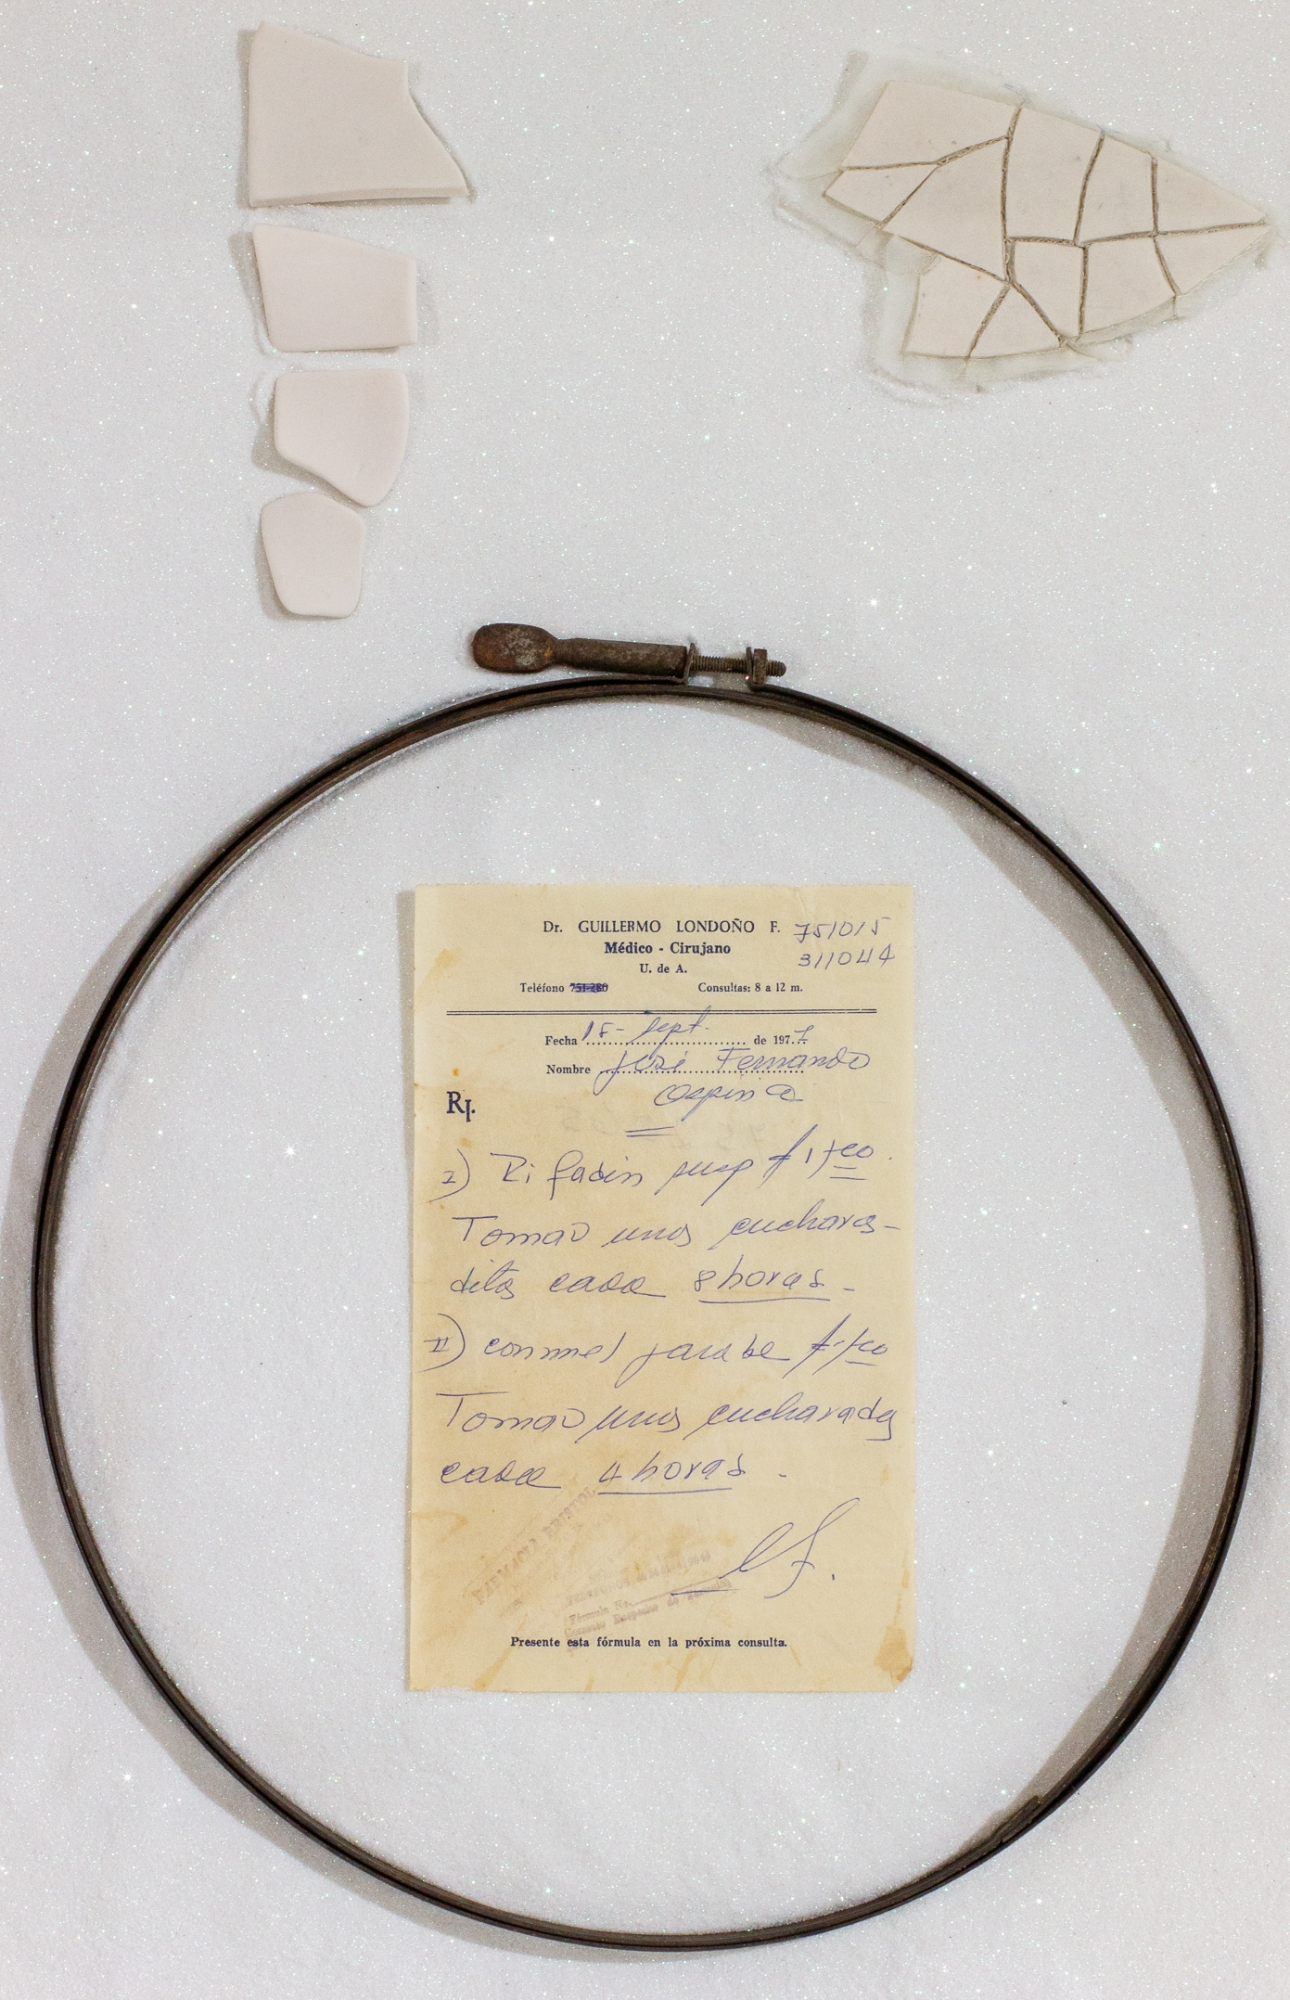 Dr. GUILLERMO LONDOÑO F. 751015
Médico - Cirujano 311044
U. de A.
Teléfono 751-280 Consultas: 8 a 12 m.
Fecha 15- Sept. de 1977
Nombre José Fernando
Ospina
RJ.
I) Rifadin susp # 1 fco.
Tomar una cuchara-
dita cada 8 horas -
II) conmel jarabe # 1 fco
Tomar una cucharada
cada 4 horas .
FARMACIA BRISTOL
Fórmula No.
Presente esta fórmula en la próxima consulta.